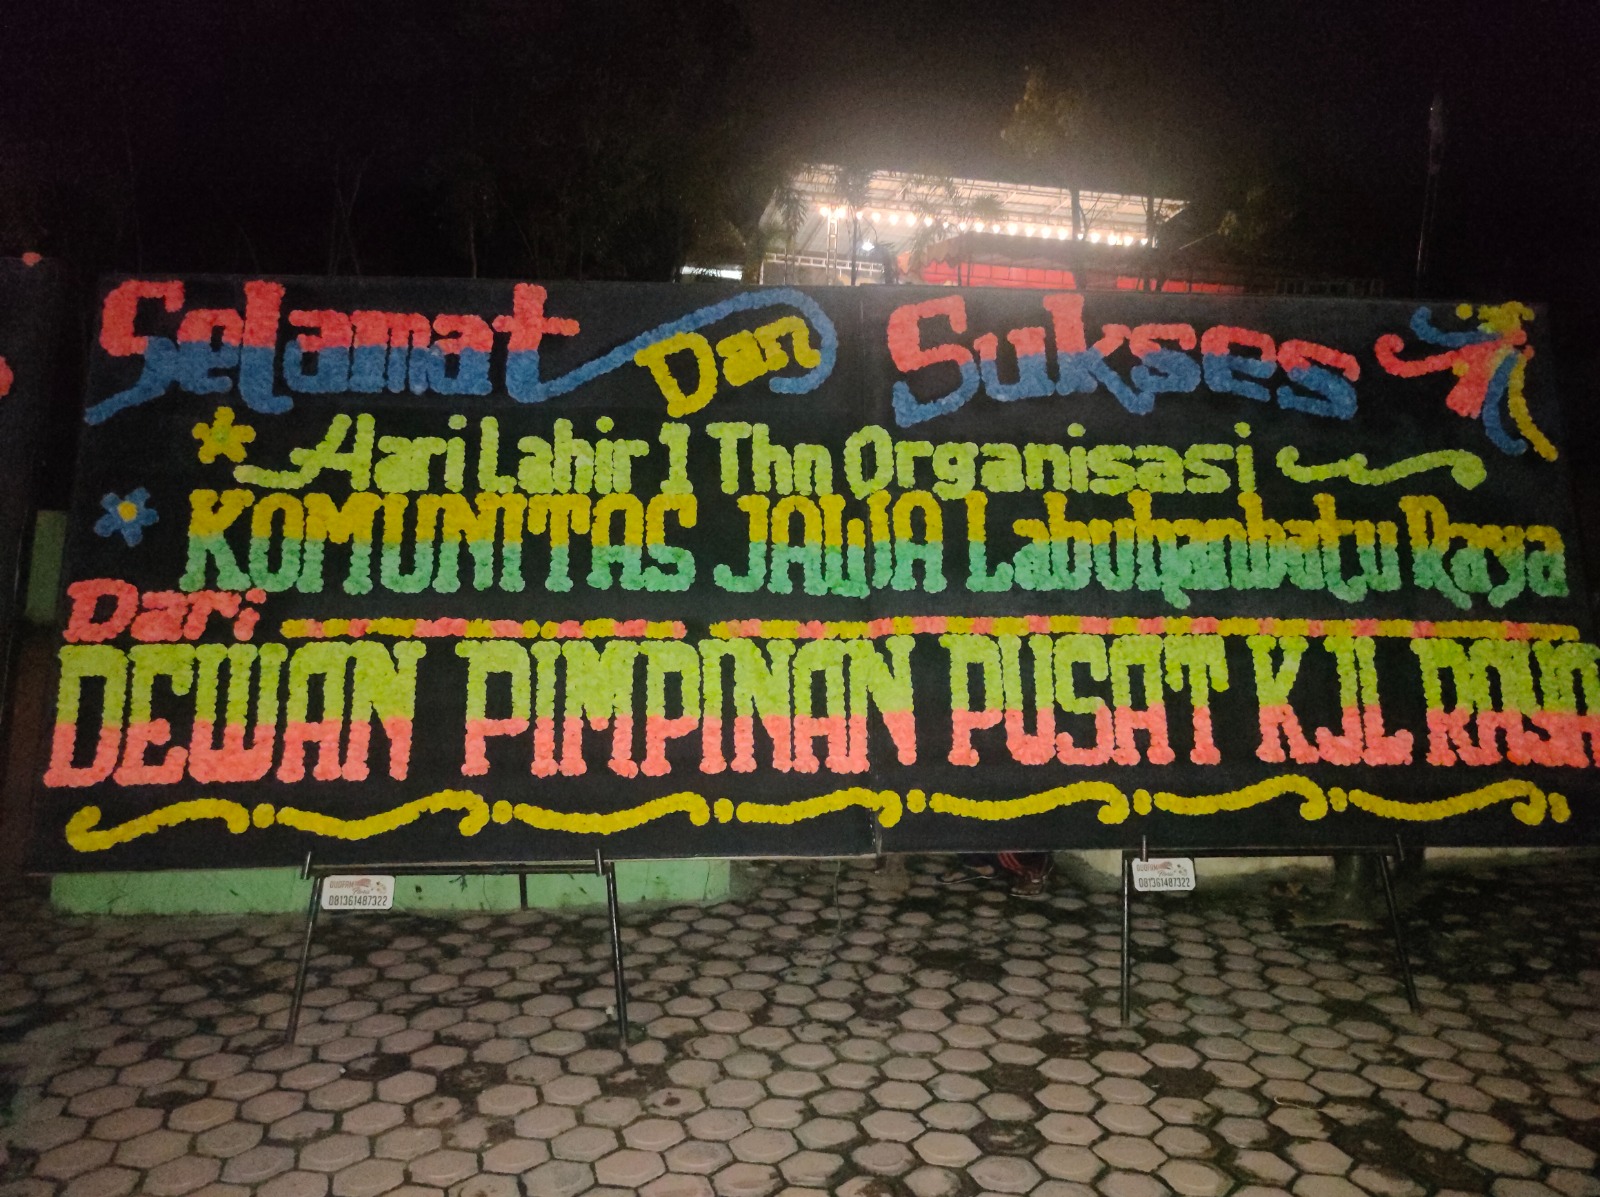 Selamat Dan Sukses
Hari Lahir 1 Thn Organisasi
KOMUNITAS JAWA Labuhanbatu Raya
Dari
DEWAN PIMPINAN PUSAT KJL RAYA
081361487322
081361487322